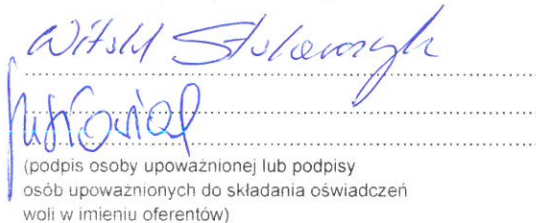 Witold Stolarczyk
(podpis osoby upoważnionej lub podpisy
osób upoważnionych do składania oświadczeń
woli w imieniu oferentów)